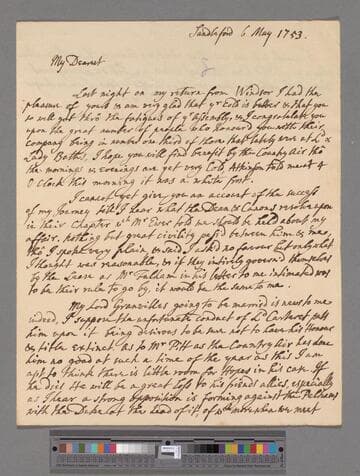 Sandleford 6 May 1753.
My Dearest
Last night on my return from Windsor I had the
pleasure of yours & am very glad that yr Cold is better & that you
so well got thro the fatigues of yr Assembly, & I congratulate you
upon the great number of people who honourd you with their
company being in number one third of those that lately were at
Lady Baths. I hope you will find benefit by the Country Air tho
the mornings & evenings are yet very cold, Atkinson told me at 4
O Clock this morning it was a white frost.
I cannot yet give you an account of the success
of my Journey till I hear what the Dean & Canons resolve upon
in their Chapter wch Mr Ever told me should be held about my
affair. nothing but great civility passd between them & me,
tho I spoke very plain, & said I askd no favour but only what
I thought was reasonable, & if they intirely governd themselves
by the Lease as Mr Fulham in his letter to me intimated was
to be their rule to go by, it would be the same to me.
My Lord Granvilles going to be married is news to me
indeed, I suppose the unfortunate conduct of Ld Carteret puts
him upon it being desirous to be sure not to have his Honour
& title extinct. As to Mr Pitt as the Country Air has done
him no good at such a time of the year as this I am
apt to think there is little room for Hopes in his case. If
he dies He will be a great loss to his friends & allies, especially
as I hear a strong opposition is forming against the Pelhams
with the Duke at the head of it. of wch more when we meet